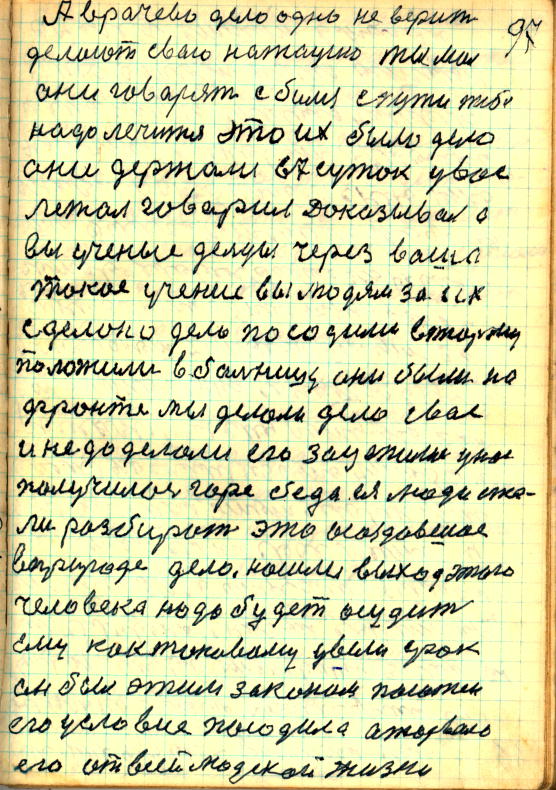 А врачево дело одно не верит
97
делоют сваю натацию ты мол
они говарят сбился с пути тебе
надо лечится это их было дело
они держали 67 суток у вас
лежал говарил доказывал а
вы ученые делцы через ваша
такое учение вы людям за их
сделоно дело посодили в тюрму
положили в болницу они были на
фронте мы делоли дело свае
и недоделоли его
получилося горе беда ся люди ста-
ли разбират это создавшае
в природе дело. нашли выход этого
человека надо будет осудит
ему как токовому увели срок
он был этим законом положен
его условие посодила аторвало
его от всей людской жизни